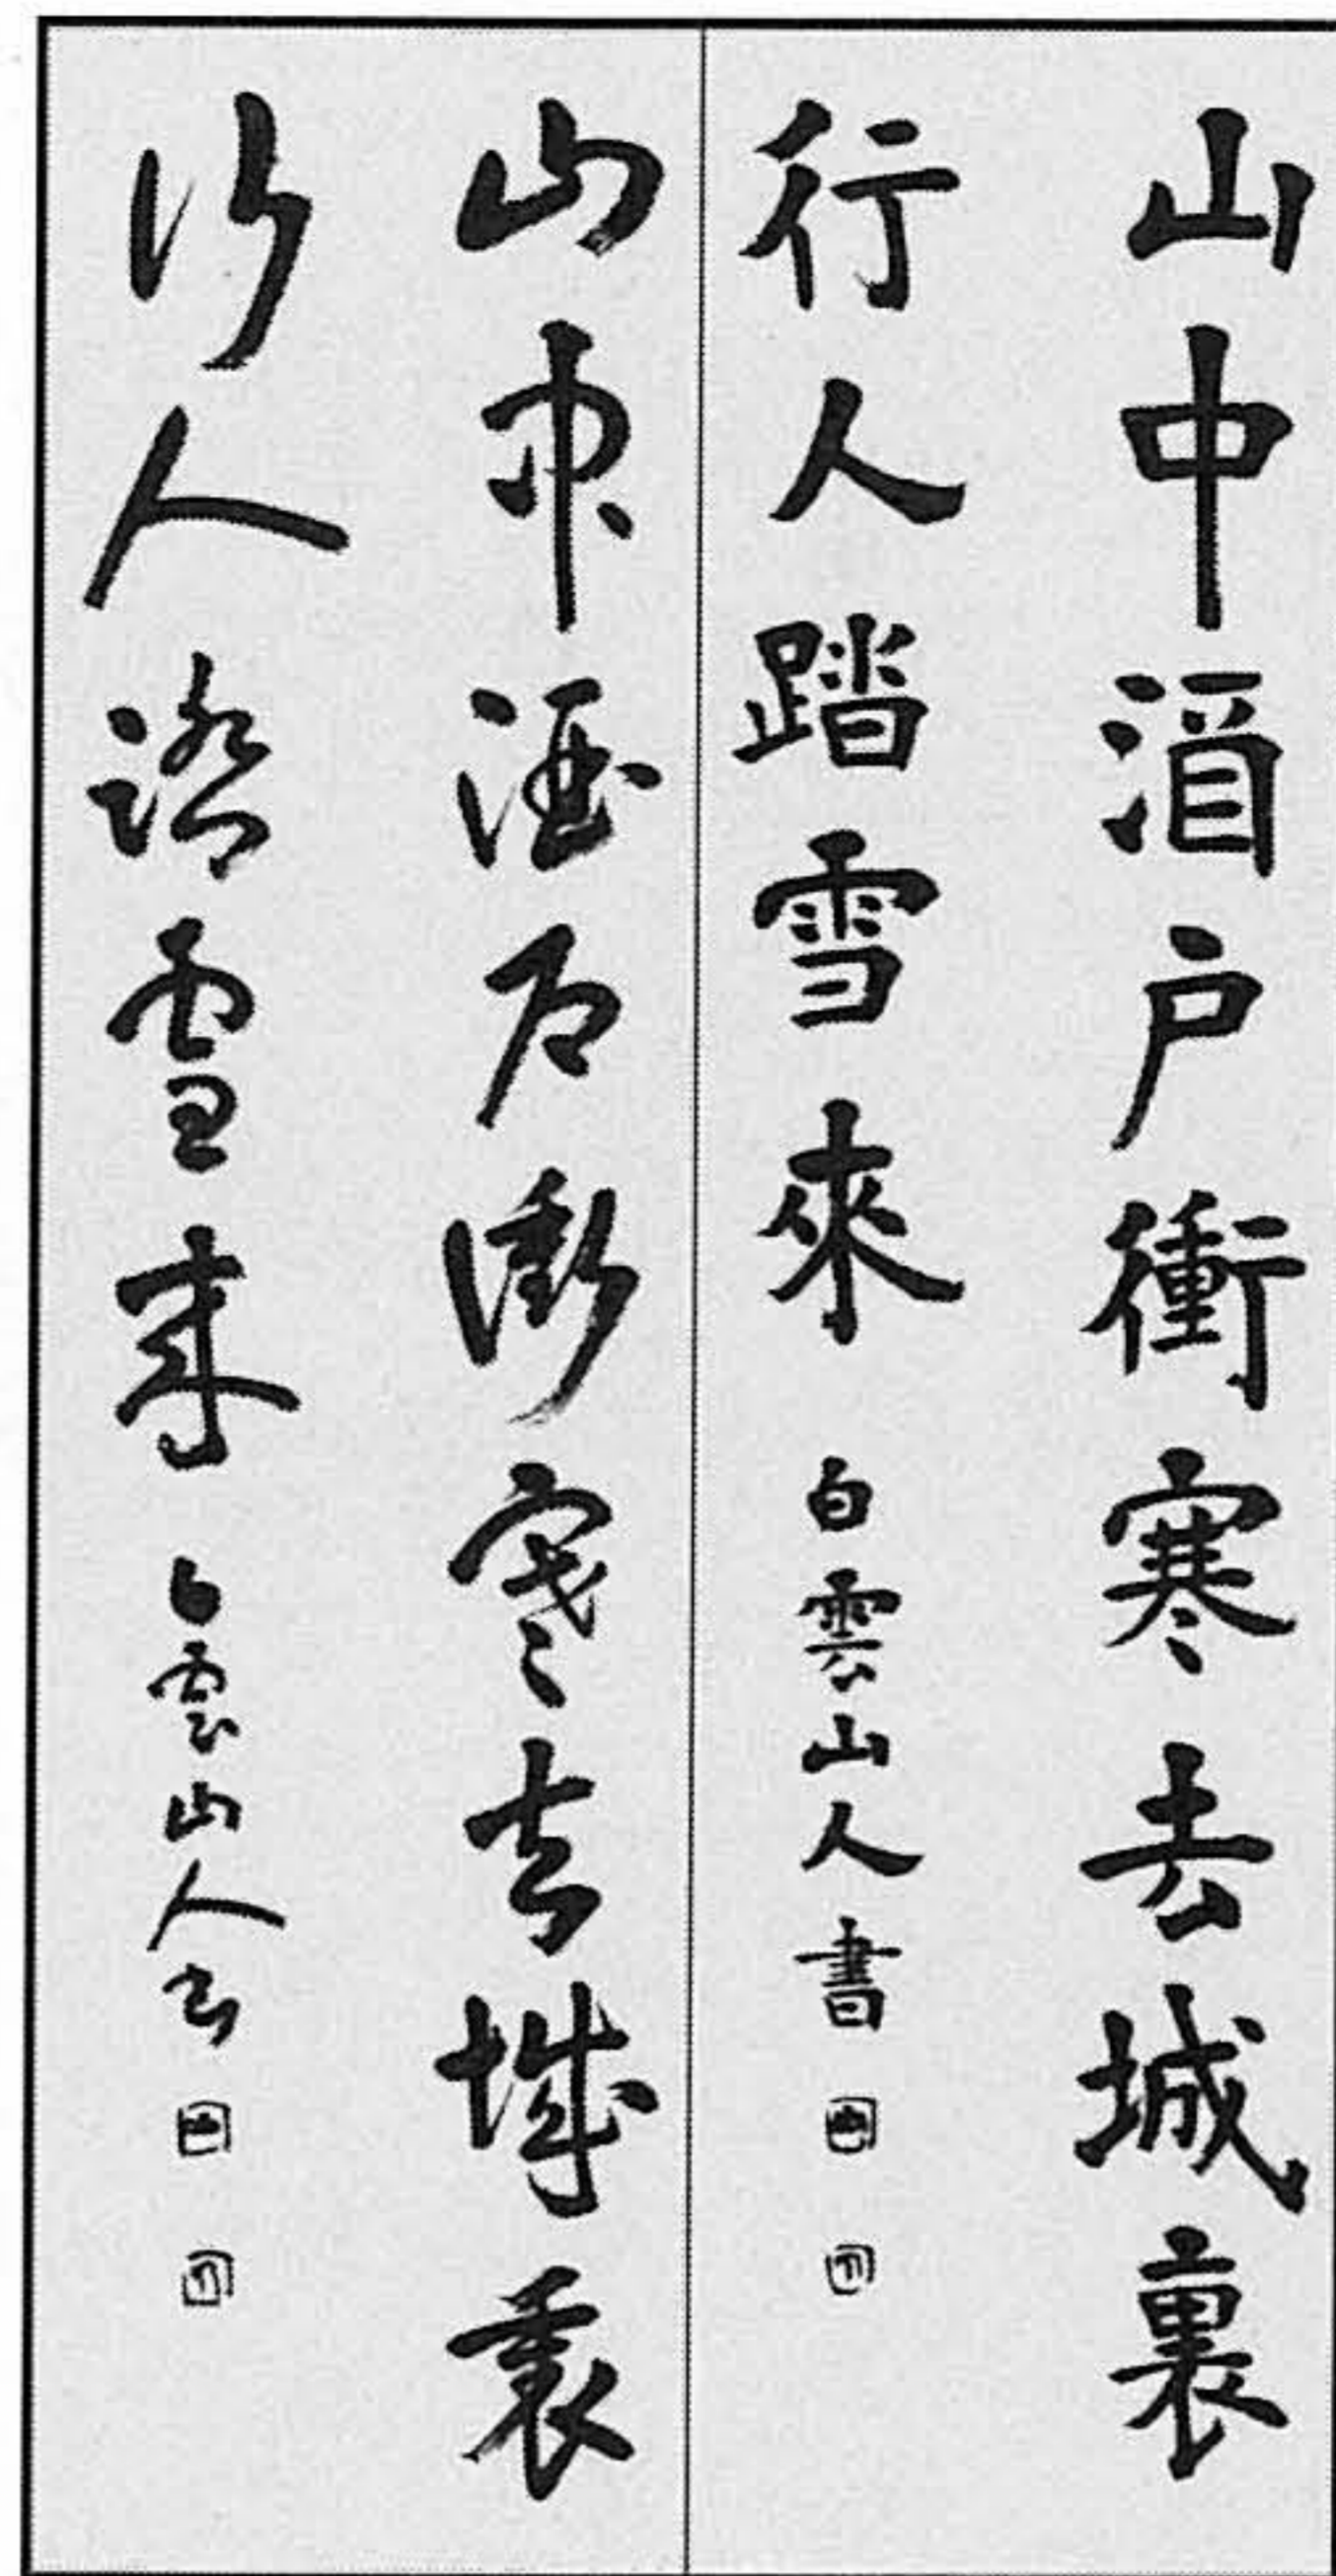 山中酒户衝寒去城裏
行人踏雪來 白雲山人書
山中酒户衝寒去城裏
行人踏雪來 白雲山人書